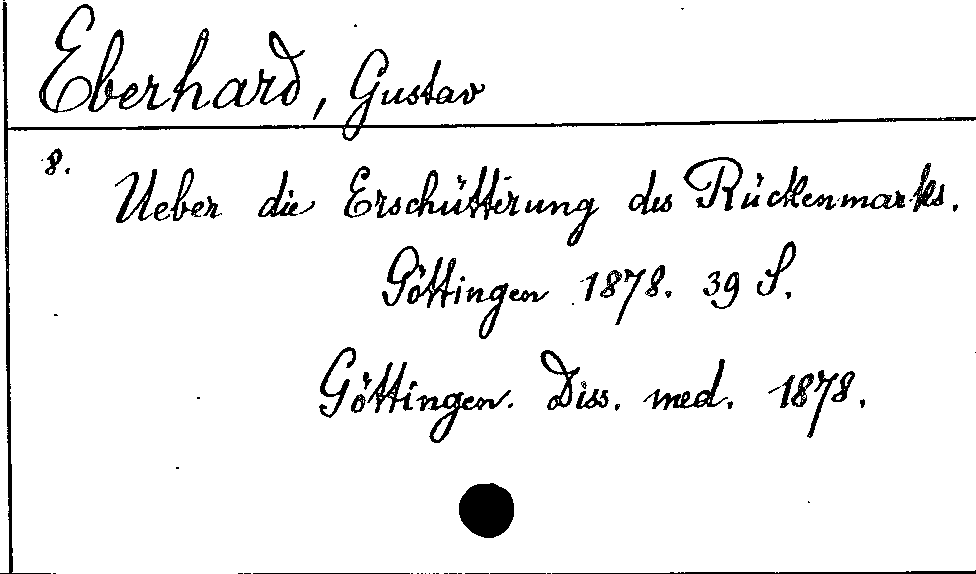 Eberhard, Gustav
8.
Ueber die Erschütterung des Rückenmarks.
Göttingen 1878. 39 S.
Göttingen. Diss. med. 1878.